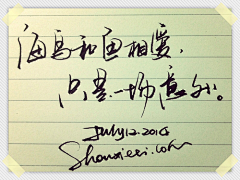 海鸟和鱼相爱，
只是一场意外。
July 12. 2014
Shouxieti.com